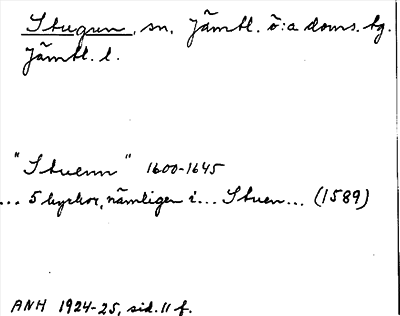 Stugun, sn, Jämtl. ö:a doms. tg.
Jämtl. l.
"Stuenn" 1600-1645
... 5 kyrkor, nämligen i... Stuen... (1589)
ANH 1924-25, sid. 11 f.